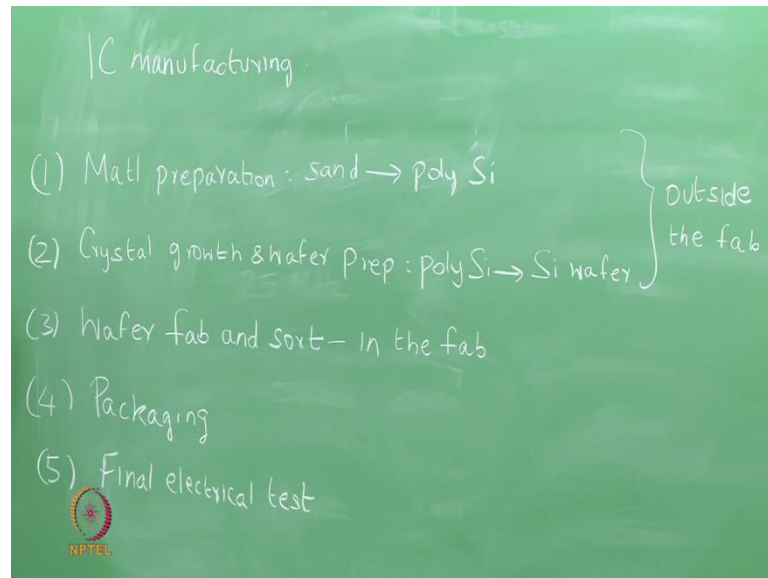 IC manufacturing.
(1) Matl preparation: sand → poly Si
(2) Crystal growth & wafer prep: poly Si → Si wafer
outside
the fab
(3) Wafer fab and sort - in the fab
(4) Packaging
(5) Final electrical test
NPTEL